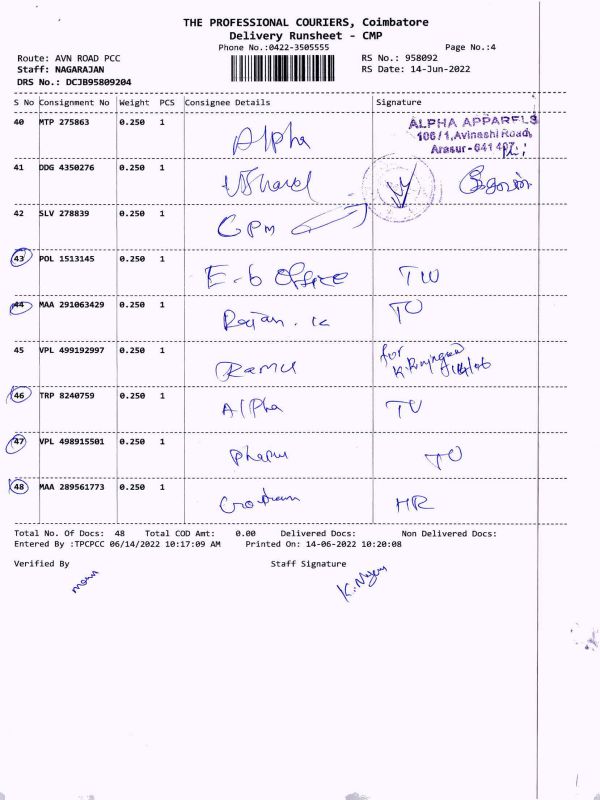 THE PROFESSIONAL COURIERS, Coimbatore
Delivery Runsheet - CMP
Phone No.:0422-3505555
Page No.:4
Route: AVN ROAD PCC
RS No.: 958092
Staff: NAGARAJAN
RS Date: 14-Jun-2022
DRS No.: DCJB95809204
S No Consignment No Weight PCS Consignee Details Signature
40 MTP 275863 0.250 1 Alpha
ALPHA APPARELS
106/1, Avinashi Road,
Arasur - 641 407
41 DDG 4350276 0.250 1
42 SLV 278839 0.250 1 GPM
43 POL 1513145 0.250 1 E-b office TW
44 MAA 291063429 0.250 1 Rajan. K TU
45 VPL 499192997 0.250 1 Ramu for
46 TRP 8240759 0.250 1 Alpha TU
47 VPL 498915501 0.250 1 TU
48 MAA 289561773 0.250 1 HR
Total No. Of Docs: 48 Total COD Amt: 0.00 Delivered Docs: Non Delivered Docs:
Entered By :TPCPCC 06/14/2022 10:17:09 AM Printed On: 14-06-2022 10:20:08
Verified By Staff Signature